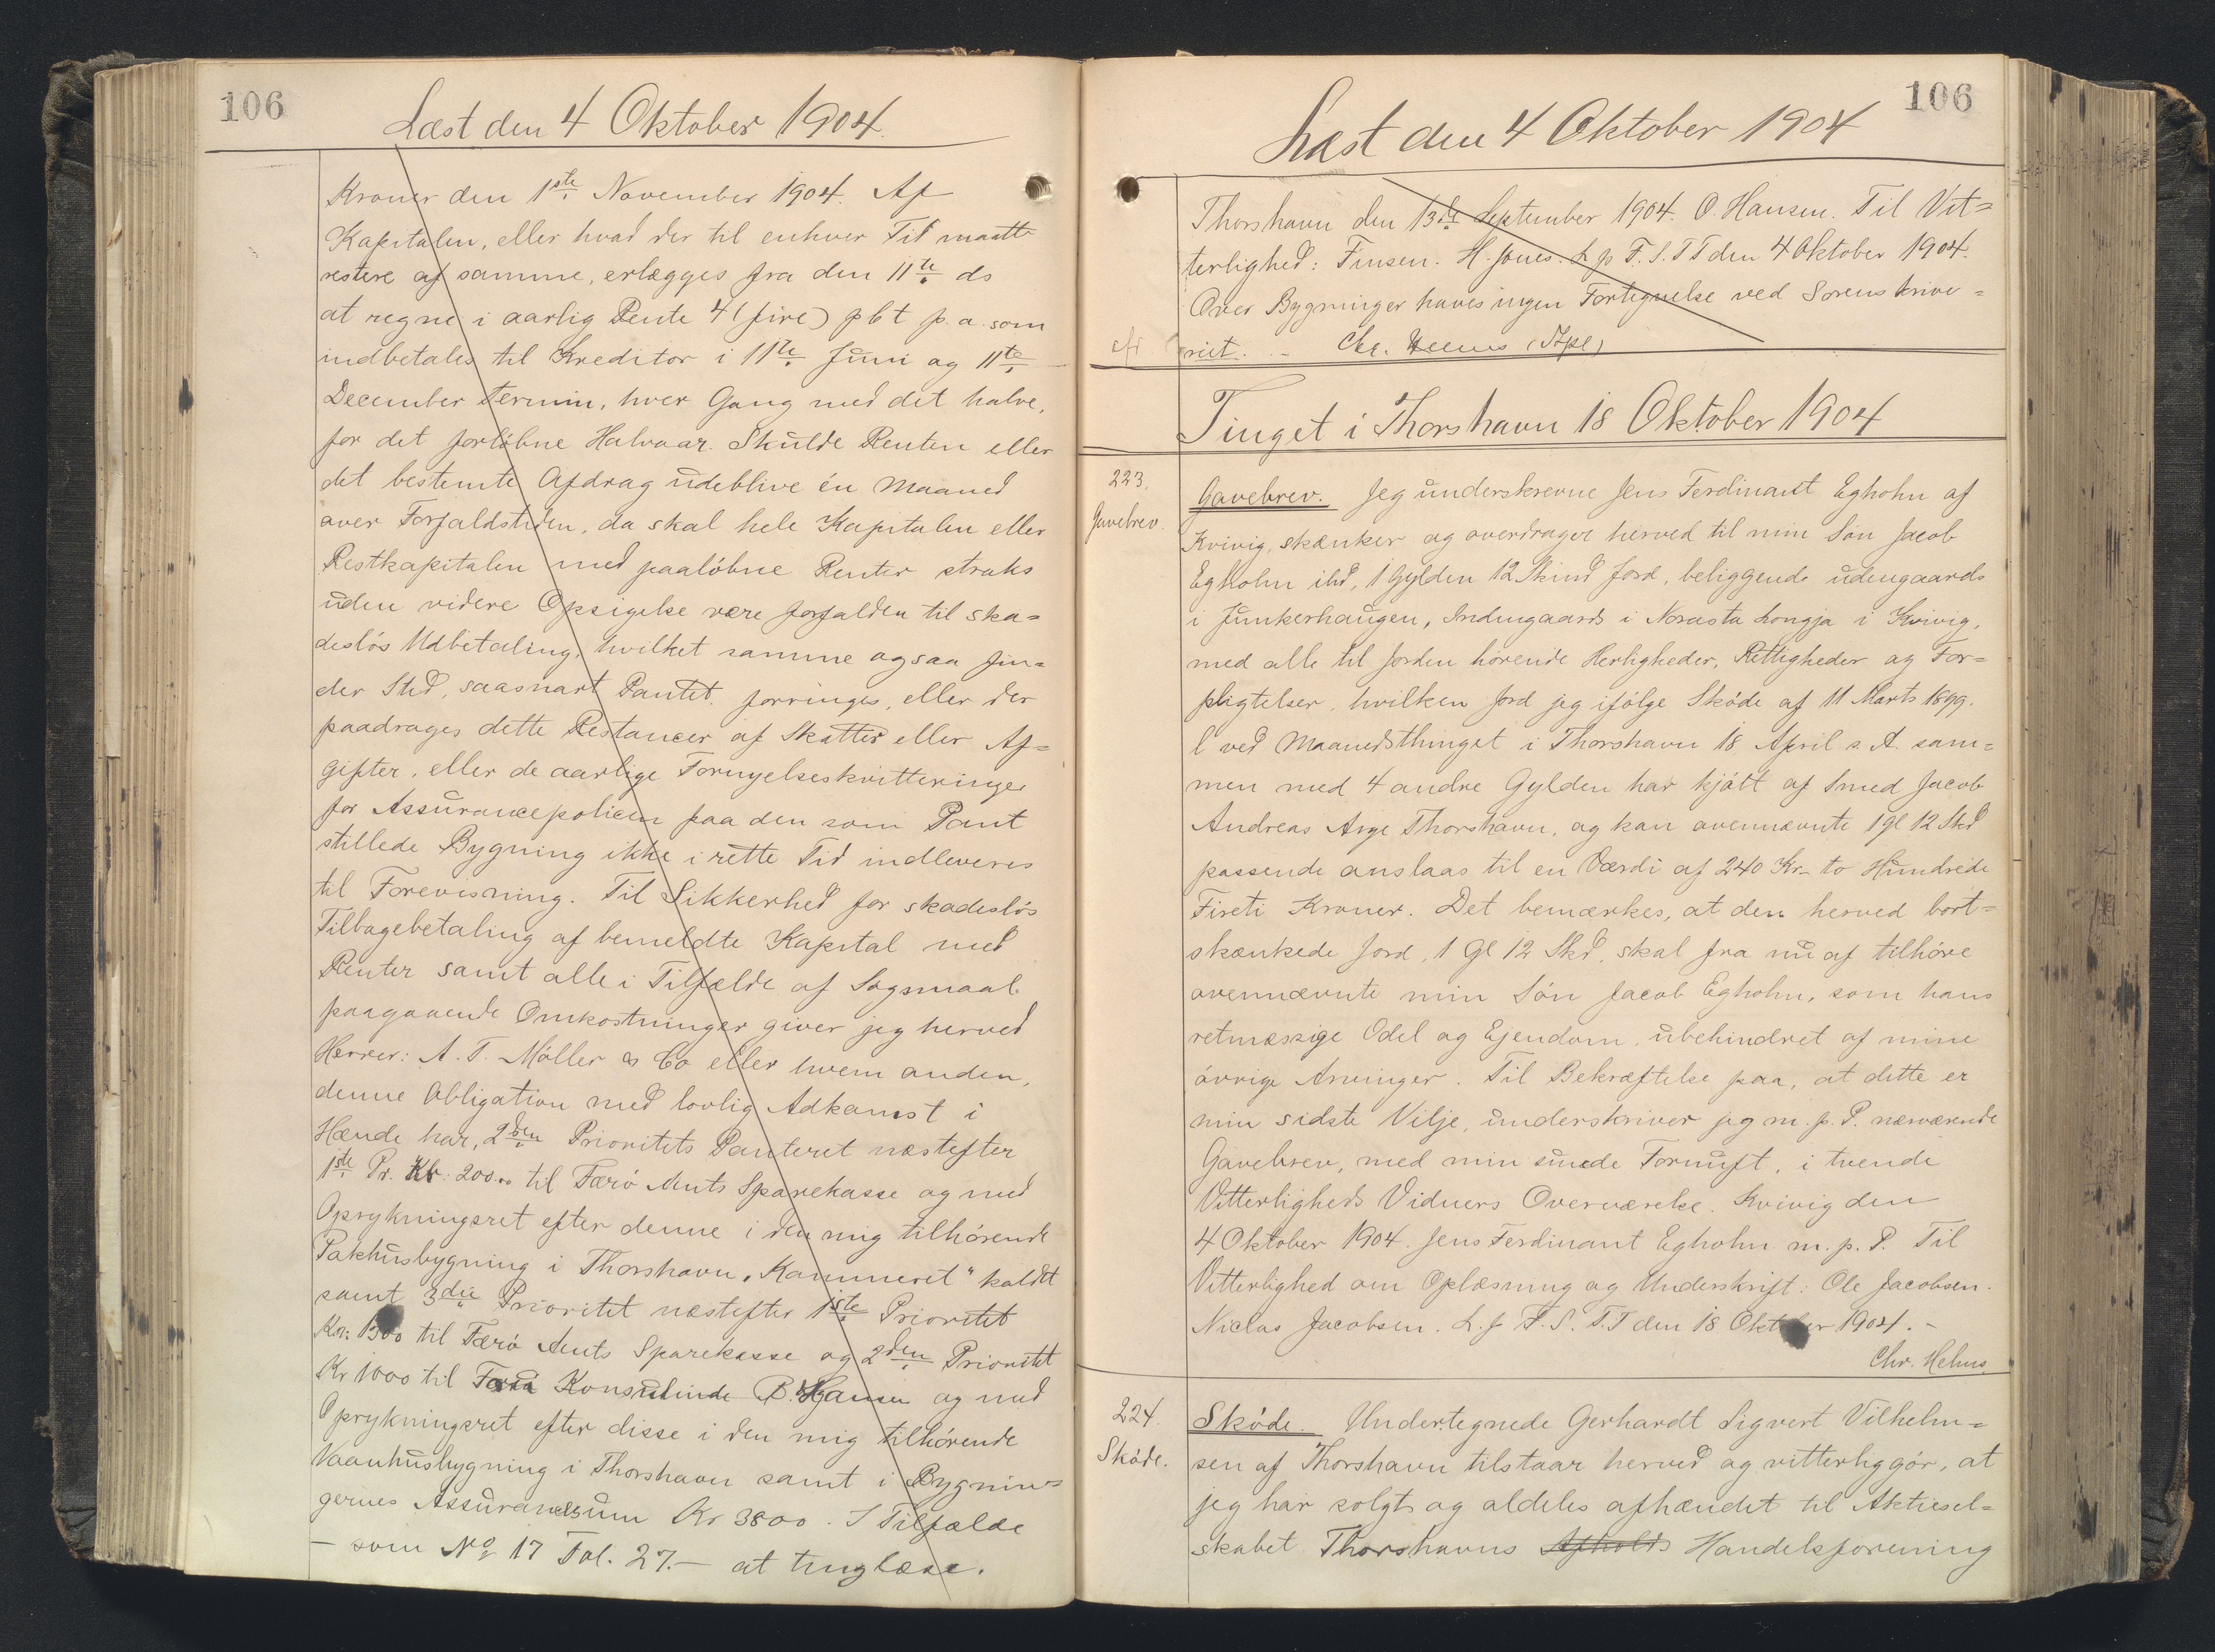 106
Læst den 4 Oktober 1904.
Kroner den 1ste November 1904. Af
Kapitalen, eller hvad der til enhver Tid maatte
restere af samme, erlægges fra den 11te ds
at regne i aarlig Rente 4 (fire) pCt p. a. som
indbetales til Kreditor i 11te Juni og 11te
December Termin, hver Gang med det halve,
for det forløbne Halvaar. Skulde Renten eller
det bestemte Afdrag udeblive én Maaned
over Forfaldstiden, da skal hele Kapitalen eller
Restkapitalen med paaløbne Renter straks
uden videre Opsigelse være forfalden til ska=
desløs Udbetaling, hvilket samme ogsaa fin=
der Sted, saasnart Pantet forringes, eller der
paadrages dette Restancer af Skatter eller Af=
gifter, eller de aarlige Fornyelseskvitteringer
for Assurancepolicen paa den som Pant
stillede Bygning ikke i rette Tid indleveres
til Forevisning. Til Sikkerhed for skadesløs
Tilbagebetaling af bemeldte Kapital med
Renter samt alle i Tilfælde af Søgsmaal
paagaaende Omkostninger giver jeg herved
Herrer: A. T. Møller & Co eller hvem anden,
denne Obligation med lovlig Adkomst i
Hænde har, 2den Prioritets Panteret næstefter
1ste Pr. Kr. 200.00 til Færø Amts Sparekasse og med
Oprykningsret efter denne i den mig tilhørende
Pakhusbygning i Thorshavn "Kammeret" kaldt
samt 3die Prioritet næstefter 1ste Prioritet
Kr: 1300 til Færø Amts Sparekasse og 2den Prioritet
Kr 1000 til Konsulinde B. Hansen og med
Oprykningsret efter disse i den mig tilhørende
Vaanhusbygning i Thorshavn samt i Bygnin=
gernes Assurancesum Kr 3800. I Tilfælde
- som No 17 Fol. 27.- at tinglæse.
106
Læst den 4 Oktober 1904
Thorshavn den 13de September 1904. O. Hansen. Til Vit=
terlighed: Finsen. H. Jones. L p F. S. T T den 4 Oktober 1904.
Over Bygninger haves ingen Fortegnelse ved Sorenskrive=
riet. - Chr. Helms
Tinget i Thorshavn 18 Oktober 1904
223.
Gavebrev.
Gavebrev. Jeg underskrevne Jens Ferdinant Egholm af
Kvivig, skænker og overdrager herved til min Søn Jacob
Egholm ibd, 1 Gylden 12 Skind Jord, beliggende udengaards
i Junkerhaugen, Indengaards i Norasta Longja i Kvivig,
med alle til Jorden hørende Herligheder, Rettigheder og For=
pligtelser, hvilken Jord jeg ifølge Skøde af 11 Marts 1899.
l ved Maanedsthinget i Thorshavn 18 April s. A. sam=
men med 4 andre Gylden har kjøtt af Smed Jacob
Andreas Arge Thorshavn, og kan ovennævnte 1 Gl 12 Skd
passende anslaas til en Værdi af 240 Kr- to Hundrede
Fireti Kroner. Det bemærkes, at den herved bort=
skænkede Jord, 1 Gl 12 Skd, skal fra nu af tilhøre
ovennævnte min Søn Jacob Egholm, som hans
retmæssige Odel og Ejendom, ubehindret af mine
øvrige Arvinger. Til Bekræftelse paa, at dette er
min sidste Vilje, underskriver jeg m. p. P. nærværende
Gavebrev, med min sunde Fornuft, i tvende
Vitterligheds Vidners Overværelse. Kvivig den
4 Oktober 1904. Jens Ferdinant Egholm m. p. P. Til
Vitterlighed om Oplæsning og Underskrift: Ole Jacobsen.
Niclas Jacobsen. L. p F. S. T.T den 18 Oktober 1904. -
Chr. Helms
224.
Skøde.
Skøde. Undertegnede Gerhardt Sigvert Vilhelm=
sen af Thorshavn tilstaar herved og vitterliggør, at
jeg har solgt og aldeles afhændet til Aktiesel=
skabet Thorshavns Afholds Handelsforening